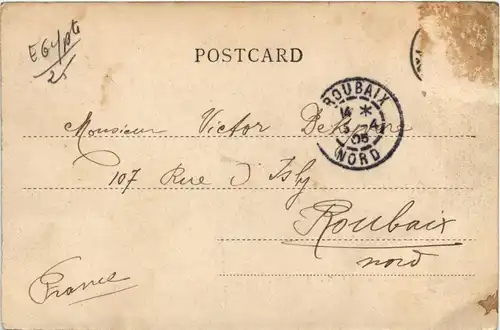 Egypte
25
POSTCARD
ROUBAIX
NORD
Monsieur Victor
107 Rue d'Isly
Roubaix
nord
France